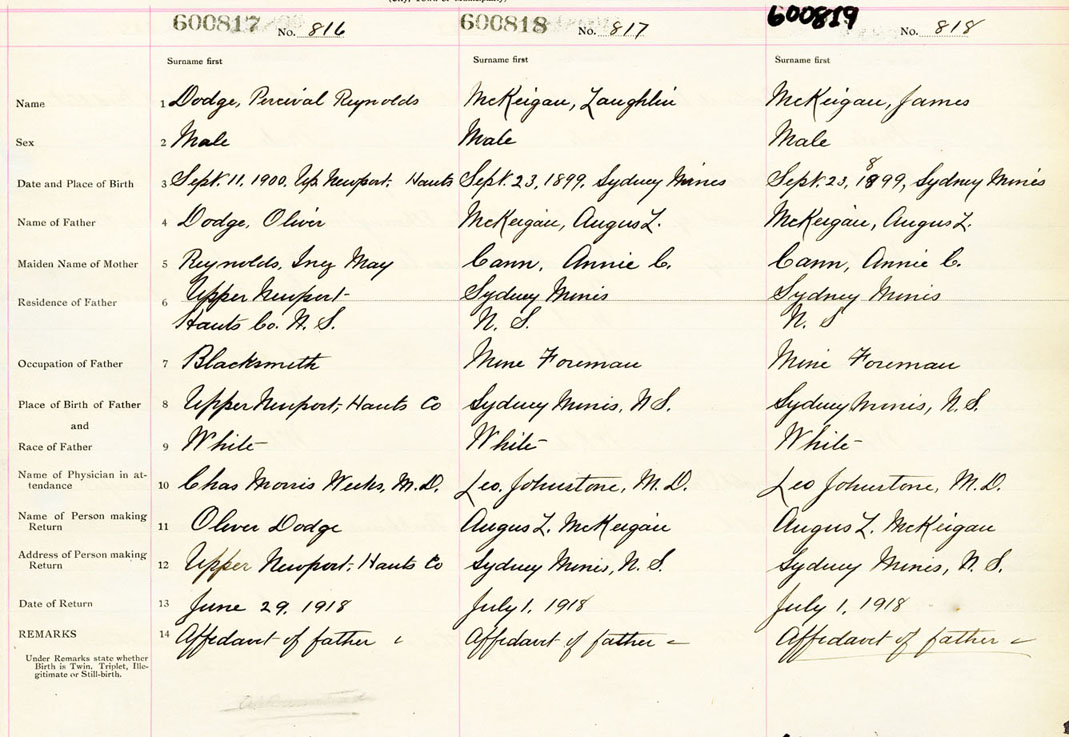 600817 No. 816 600818 No. 817 600819 No. 818
Surname first Surname first Surname first
Name 1 Dodge, Percival Reynolds McKeigan, Laughlin McKeigan, James
Sex 2 Male Male Male
Date and Place of Birth 3 Sept. 11, 1900, Up. Newport, Hants Sept. 23, 1899, Sydney Mines Sept. 23, 1899, Sydney Mines
Name of Father 4 Dodge, Oliver McKeigan, Angus L. McKeigan, Angus L.
Maiden Name of Mother 5 Reynolds, Inez May Cann, Annie C. Cann, Annie C.
Residence of Father 6 Upper Newport Sydney Mines Sydney Mines
Hants Co. N.S. N. S. N. S
Occupation of Father 7 Blacksmith Mine Foreman Mine Foreman
Place of Birth of Father 8 Upper Newport, Hants Co Sydney Mines, N S. Sydney Mines, N. S.
and
Race of Father 9 White White White
Name of Physician in at-
tendance 10 Chas Morris Weeks, M.D. Leo. Johnstone, M.D. Leo Johnstone, M.D.
Name of Person making
Return 11 Oliver Dodge Angus L. McKeigan Angus L. McKeigan
Address of Person making
Return 12 Upper Newport, Hants Co Sydney Mines, N. S. Sydney Mines, N. S.
Date of Return 13 June 29, 1918 July 1, 1918 July 1, 1918
REMARKS 14 Affidavit of father Affidavit of father Affidavit of father
Under Remarks state whether
Birth is Twin, Triplet, Ille-
gitimate or Still-birth.